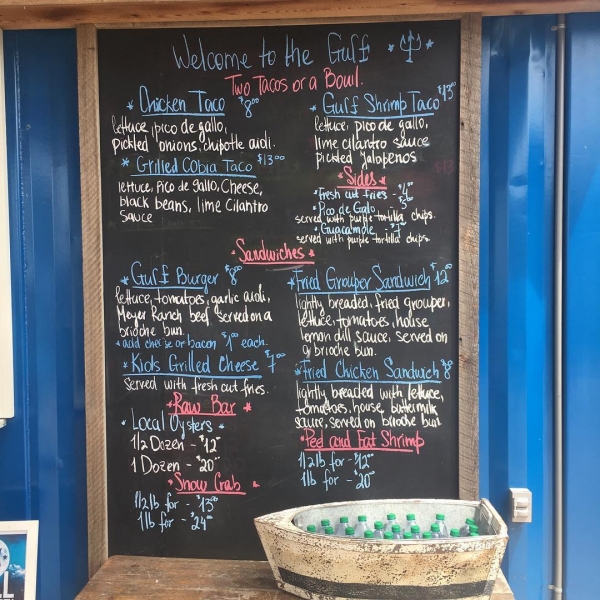 Welcome to the Gulf
Two Tacos or a Bowl.
* Chicken Taco $8⁰⁰
lettuce, pico de gallo,
pickled onions, chipotle aioli.
* Grilled Cobia Taco $13⁰⁰
lettuce, pico de gallo, cheese,
black beans, lime cilantro
sauce
* Gulf Shrimp Taco $13
lettuce, pico de gallo,
lime cilantro sauce
pickled jalapenos
* Sides *
* Fresh cut fries -
* Pico de Galo -
served with purple tortilla chips.
* Guacamole -
served with purple tortilla chips.
* Sandwiches *
* Gulf Burger $8⁰⁰
lettuce, tomatoes, garlic aioli,
Meyer Ranch beef served on a
brioche bun.
* add cheese or bacon $1⁰⁰ each.
* Kids Grilled Cheese * $7⁰⁰
Served with fresh cut fries.
* Fried Grouper Sandwich $12⁰⁰
lightly breaded, fried grouper,
lettuce, tomatoes, house
lemon dill sauce, served on
a brioche bun.
* Fried Chicken Sandwich $8
lightly breaded with lettuce,
tomatoes, house, buttermilk
sauce, served on brioche bun
* Raw Bar *
* Local Oysters *
1/2 Dozen - $12⁰⁰
1 Dozen - $20⁰⁰
* Snow Crab *
1/2 lb for - $13⁰⁰
1 lb for - $24⁰⁰
* Peel and Eat Shrimp
1/2 lb for - $12⁰⁰
1 lb for - $20⁰⁰